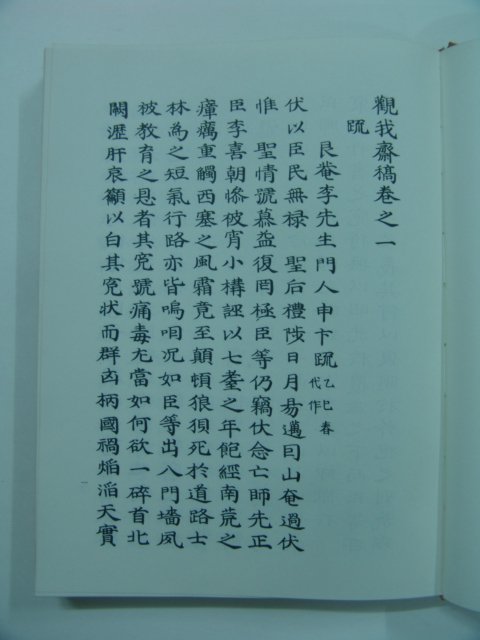 觀我齋稿卷之一
疏
艮菴李先生門人申卞疏 乙巳春代作
伏以臣民無祿 聖后禮陟日月易邁因山奄過伏
惟 聖情號慕益復罔極臣等仍竊伏念亡師先正
臣李喜朝慘被宵小構誣以七耋之年飽經南荒之
瘴癘重觸西塞之風霜竟至顚頓狼狽死於道路士
林爲之短氣行路亦皆嗚咽况如臣等出入門墻夙
被教育之恩者其寃號痛毒尤當如何欲一碎首北
闕瀝肝哀籲以白其寃狀而群凶柄國禍焰滔天實